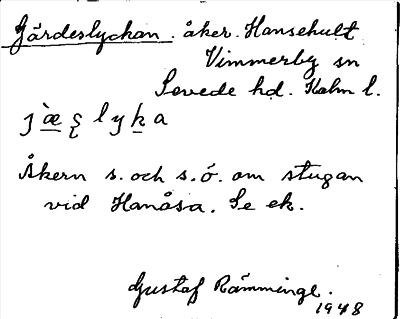 Gärdeslyckan. åker. Hansehult
Vimmerby sn
Sevede hd. Kalm l.
jæ̀ʂlyka
Åkern s. och s.ö. om stugan
vid Hanåsa. Se ek.
Gustaf Rämminge.
1948